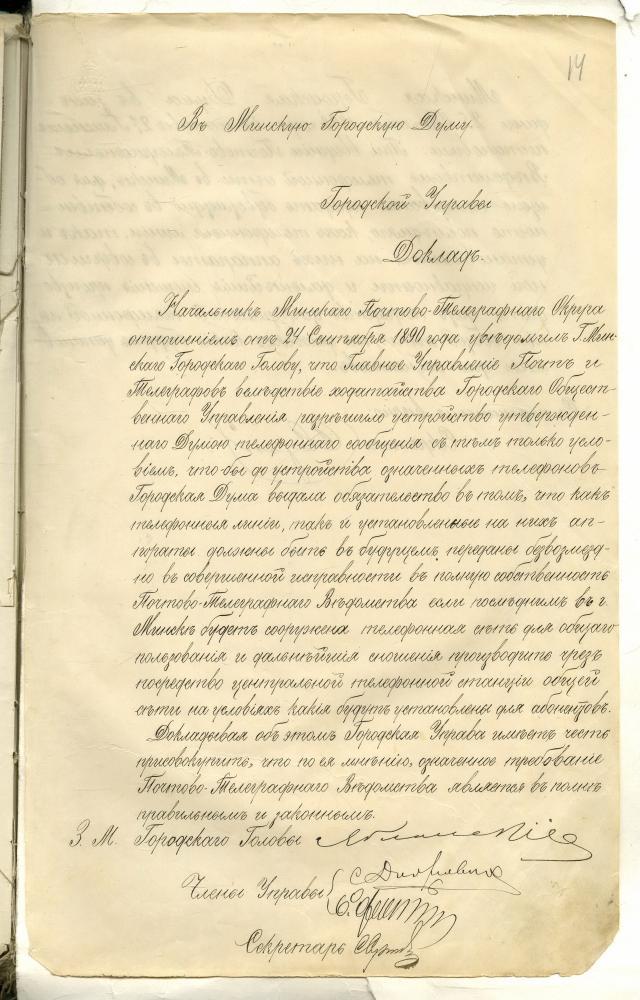 14
Въ Минскую Городскую Думу.
Городской Управы
Докладъ.
Начальникъ Минскаго Почтово-Телеграфнаго Округа
отношеніемъ отъ 24 Сентября 1890 года увѣдомилъ Г. Мин-
скаго Городского Голову, что Главное Управленіе Почтъ и
Телеграфовъ вслѣдствіе ходатайства Городскаго Общест-
веннаго Управленія разрѣшило устройство утвержден-
наго Думою телефоннаго сообщенія съ тѣмъ только усло-
віемъ, что бы до устройства означенныхъ телефоновъ
Городская Дума выдала обязательство въ томъ, что какъ
телефонныя линіи, такъ и установленные на нихъ ап-
параты должны быть въ будущемъ переданы безвозмезд-
но въ совершенной исправности въ полную собственность
Почтово-Телеграфнаго Вѣдомства если послѣднимъ въ г.
Минскѣ будетъ сооружена телефонная сѣть для общаго
пользованія и дальнѣйшія сношенія производить чрезъ
посредство центральной телефонной станціи общей
сѣти на условіяхъ какія будутъ установлены для абонентовъ.
Докладывая объ этомъ Городская Управа имѣетъ честь
присовокупить, что по ея мнѣнію, означенное требованіе
Почтово-Телеграфнаго Вѣдомства является въ полнѣ
правильнымъ и законнымъ.
З. М. Городскаго Головы
Члены Управы
Секретарь